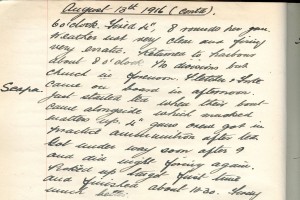 August 13th 1916 (contd).
6 o'clock. Fired 4", 8 rounds per gun.
Weather not very clear and firing
very erratic. Returned to harbour
about 8 o'clock. No divisions but
Scapa.
church in forenoon. Fletcher &
came on board in afternoon.
Just started tea when their boat
came alongside which
matters up. 4" guns crews got in
practice ammunition after tea.
Got under way soon after 9
and did night firing again.
Picked up target first time
and finished about 10.30. Turey
much